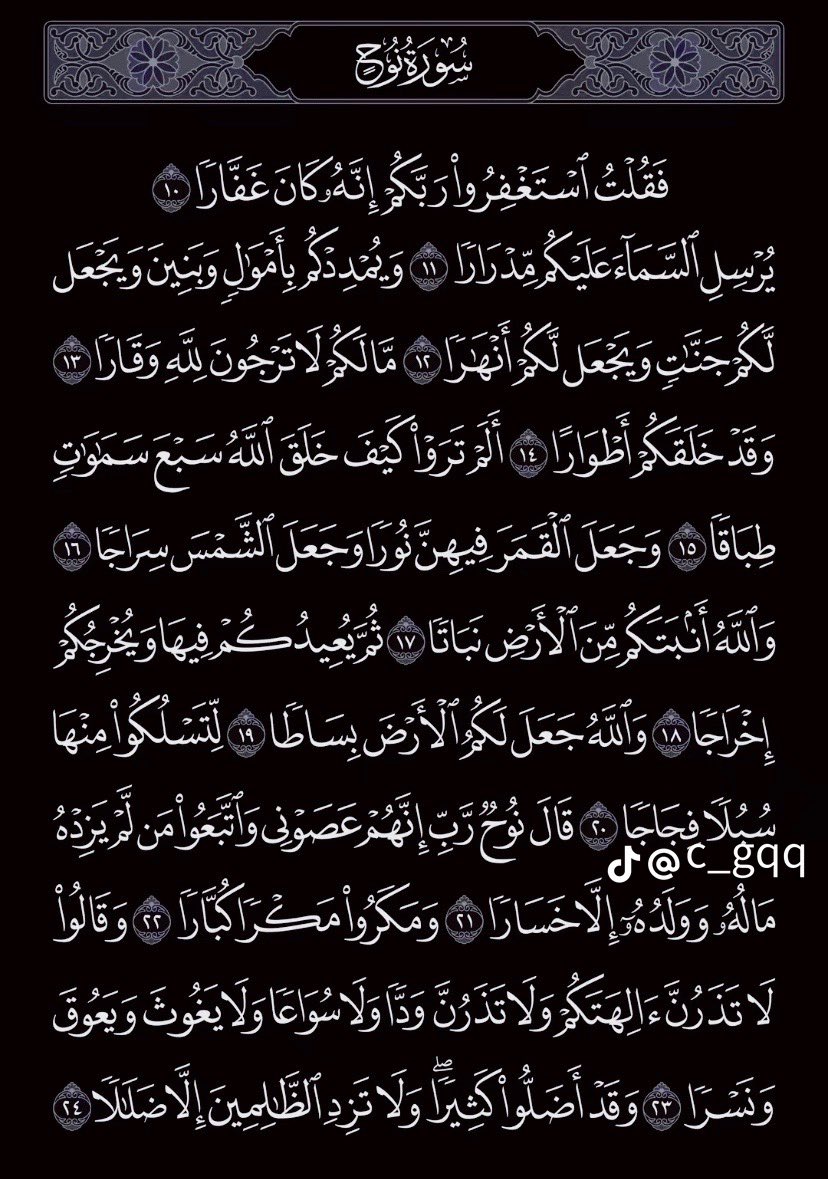 سُورَةُ نُوحٍ
فَقُلۡتُ ٱسۡتَغۡفِرُواْ رَبَّكُمۡ إِنَّهُۥ كَانَ غَفَّارٗا ١٠
يُرۡسِلِ ٱلسَّمَآءَ عَلَيۡكُم مِّدۡرَارٗا ١١ وَيُمۡدِدۡكُم بِأَمۡوَٰلٖ وَبَنِينَ وَيَجۡعَل
لَّكُمۡ جَنَّٰتٖ وَيَجۡعَل لَّكُمۡ أَنۡهَٰرٗا ١٢ مَّا لَكُمۡ لَا تَرۡجُونَ لِلَّهِ وَقَارٗا ١٣
وَقَدۡ خَلَقَكُمۡ أَطۡوَارًا ١٤ أَلَمۡ تَرَوۡاْ كَيۡفَ خَلَقَ ٱللَّهُ سَبۡعَ سَمَٰوَٰتٖ
طِبَاقٗا ١٥ وَجَعَلَ ٱلۡقَمَرَ فِيهِنَّ نُورٗا وَجَعَلَ ٱلشَّمۡسَ سِرَاجٗا ١٦
وَٱللَّهُ أَنۢبَتَكُم مِّنَ ٱلۡأَرۡضِ نَبَاتٗا ١٧ ثُمَّ يُعِيدُكُمۡ فِيهَا وَيُخۡرِجُكُمۡ
إِخۡرَاجٗا ١٨ وَٱللَّهُ جَعَلَ لَكُمُ ٱلۡأَرۡضَ بِسَاطٗا ١٩ لِّتَسۡلُكُواْ مِنۡهَا
سُبُلٗا فِجَاجٗا ٢٠ قَالَ نُوحٞ رَّبِّ إِنَّهُمۡ عَصَوۡنِي وَٱتَّبَعُواْ مَن لَّمۡ يَزِدۡهُ
TikTok @c_gqq
مَالُهُۥ وَوَلَدُهُۥٓ إِلَّا خَسَارٗا ٢١ وَمَكَرُواْ مَكۡرٗا كُبَّارٗا ٢٢ وَقَالُواْ
لَا تَذَرُنَّ ءَالِهَتَكُمۡ وَلَا تَذَرُنَّ وَدّٗا وَلَا سُوَاعٗا وَلَا يَغُوثَ وَيَعُوقَ
وَنَسۡرٗا ٢٣ وَقَدۡ أَضَلُّواْ كَثِيرٗاۖ وَلَا تَزِدِ ٱلظَّٰلِمِينَ إِلَّا ضَلَٰلٗا ٢٤